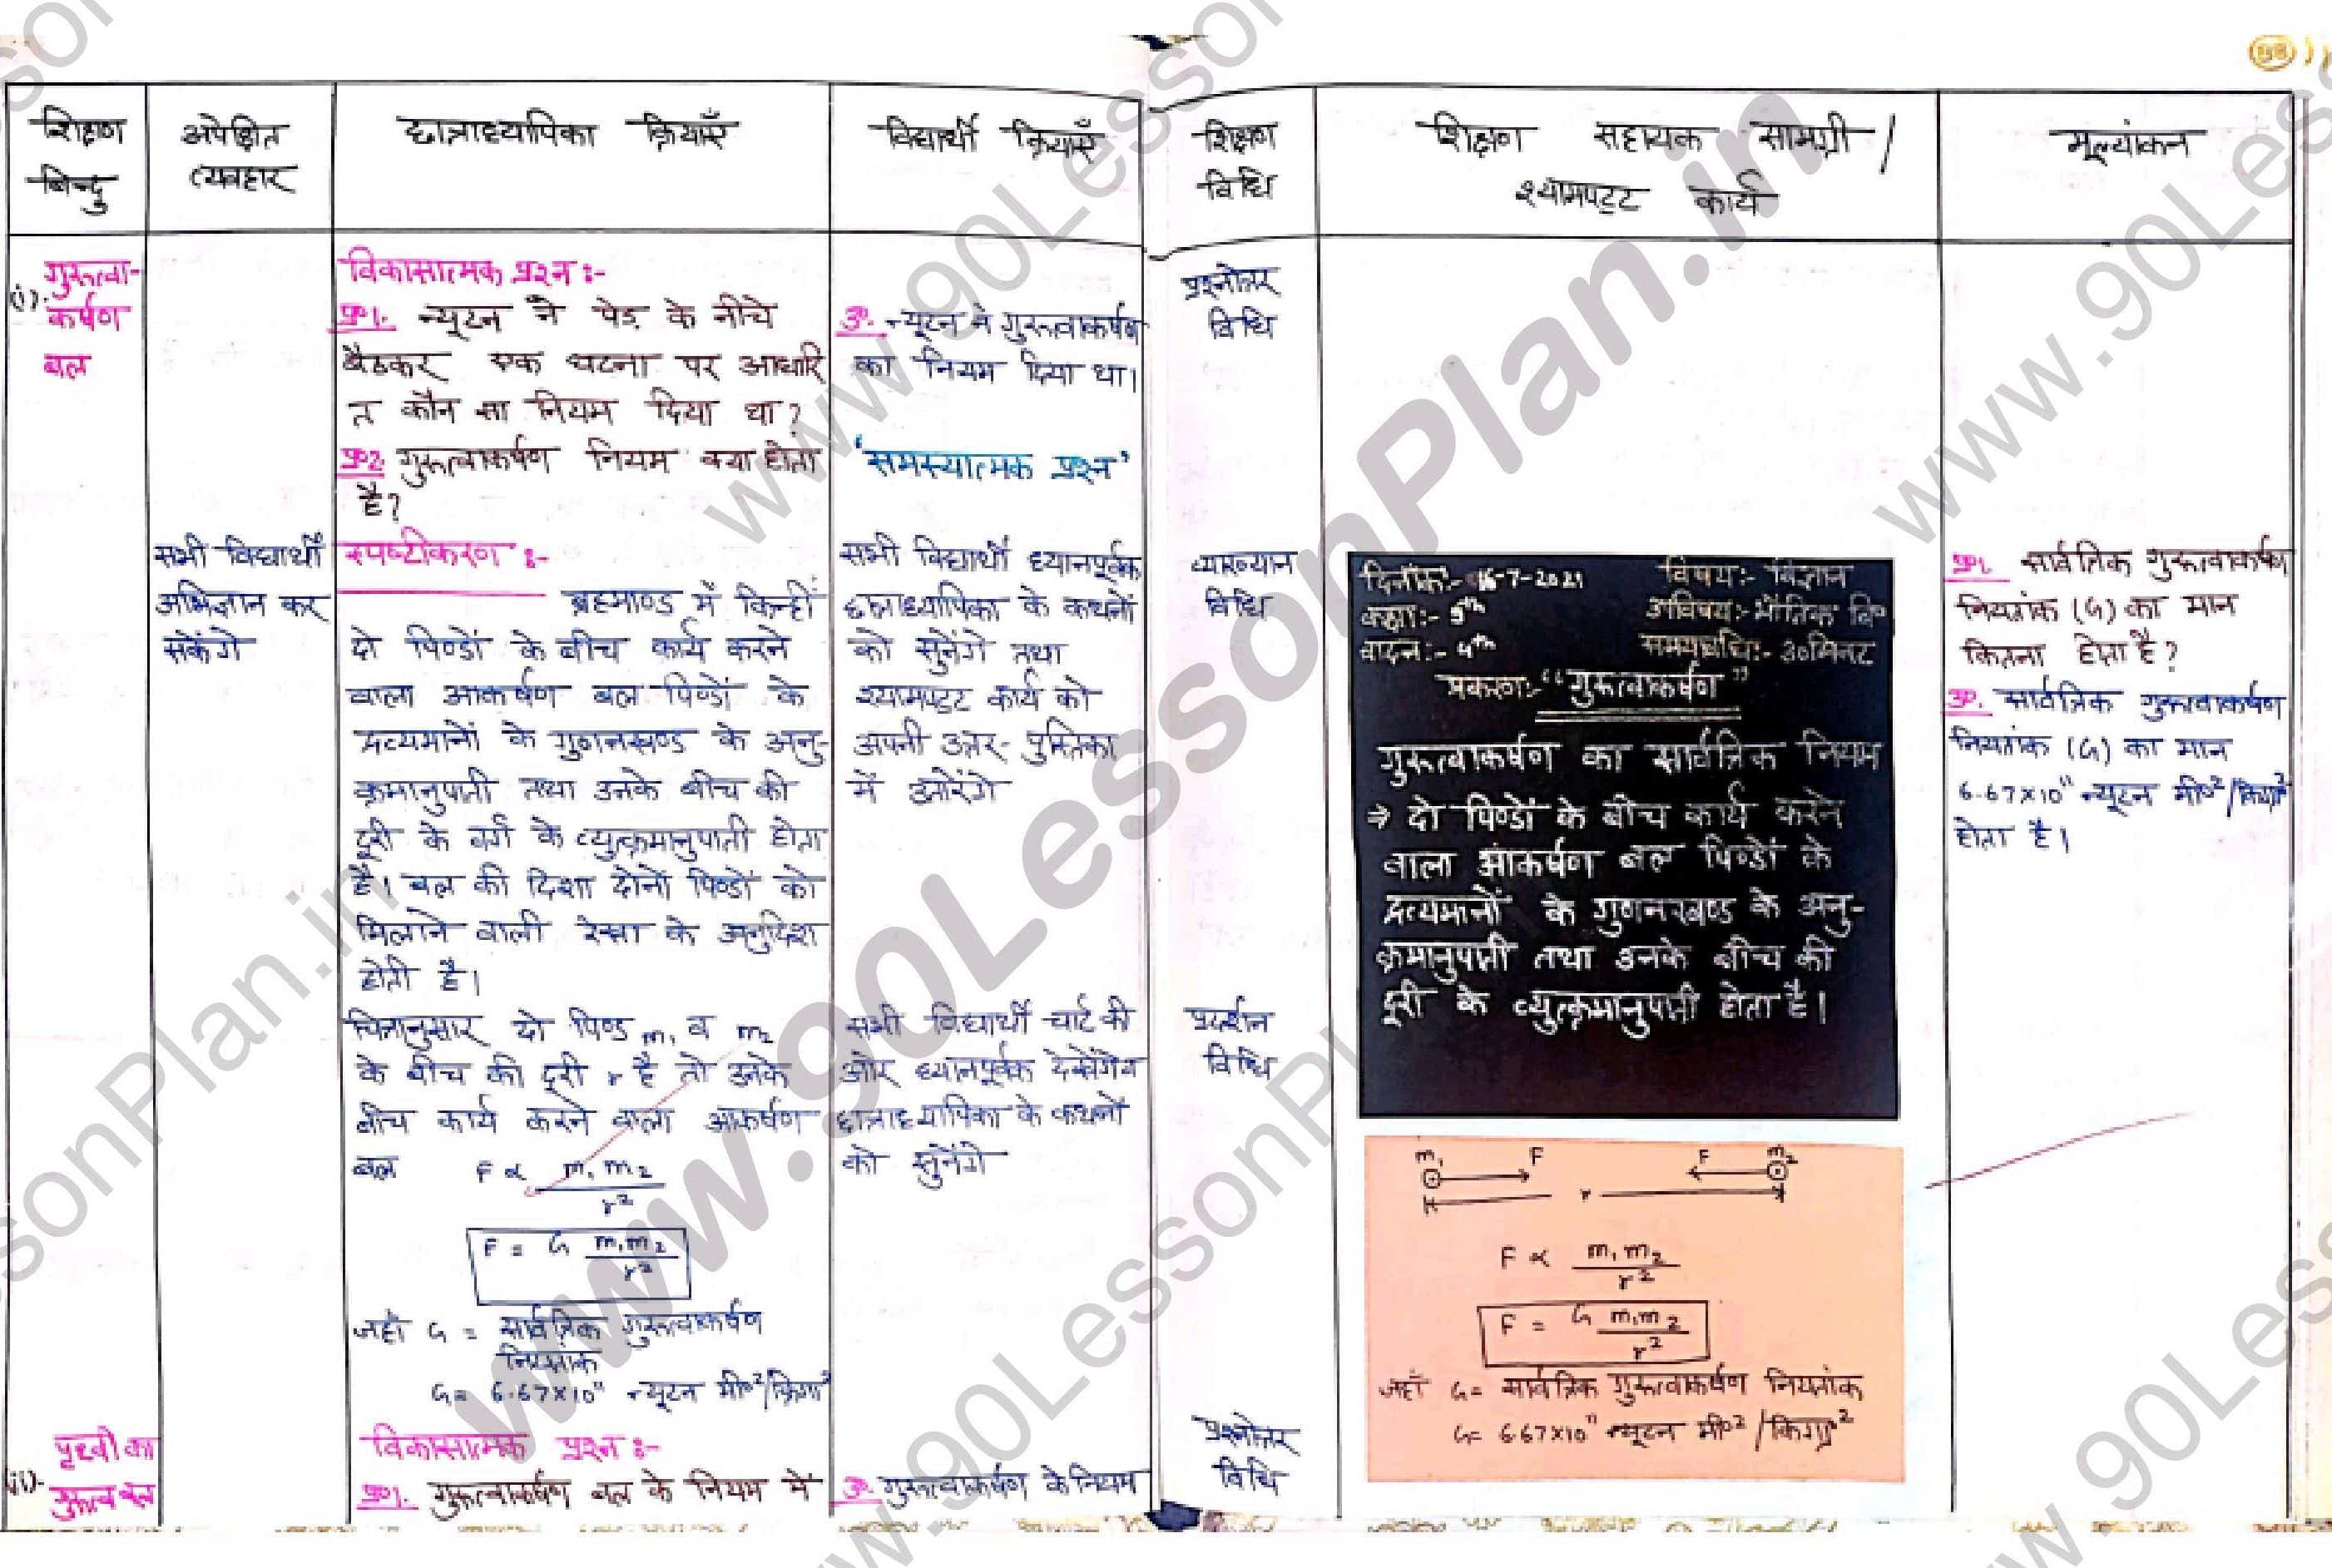 58
शिक्षण
बिन्दु
अपेक्षित
व्यवहार
छात्राध्यापिका क्रियाएँ
विद्यार्थी क्रियाएँ
शिक्षण
विधि
शिक्षण सहायक सामग्री /
श्यामपट्ट कार्य
मूल्यांकन
(i). गुरुत्वा-
कर्षण
बल
सभी विद्यार्थी
अभिज्ञान कर
सकेंगे
विकासात्मक प्रश्न :-
प्र०1. न्यूटन ने पेड़ के नीचे
बैठकर एक घटना पर आधारि
त कौन सा नियम दिया था?
प्र०2. गुरुत्वाकर्षण नियम क्या होता
है?
स्पष्टीकरण :-
ब्रहमाण्ड में किन्हीं
दो पिण्डों के बीच कार्य करने
वाला आकर्षण बल पिण्डों के
द्रव्यमानों के गुणनखण्ड के अनु-
क्रमानुपाती तथा उनके बीच की
दूरी के वर्ग के व्युत्क्रमानुपाती होता
है। बल की दिशा दोनों पिण्डों को
मिलाने वाली रेखा के अनुदिश
होती है।
चित्रानुसार दो पिण्ड m₁ व m₂
के बीच की दूरी r है तो उनके
बीच कार्य करने वाला आकर्षण
बल F ∝ m₁m₂ / r²
F = G m₁m₂ / r²
जहाँ G = सार्वत्रिक गुरुत्वाकर्षण
नियतांक
G = 6.67×10¹¹ न्यूटन मी०²/किग्रा²
उ०. न्यूटन ने गुरुत्वाकर्षण
का नियम दिया था।
'समस्यात्मक प्रश्न'
सभी विद्यार्थी ध्यानपूर्वक
छात्राध्यापिका के कथनों
को सुनेंगे तथा
श्यामपट्ट कार्य को
अपनी उत्तर-पुस्तिका
में उतारेंगे
सभी विद्यार्थी चार्ट की
ओर ध्यानपूर्वक देखेंगे व
छात्राध्यापिका के कथनों
को सुनेंगे
प्रश्नोत्तर
विधि
व्याख्यान
विधि
प्रदर्शन
विधि
दिनांक:- 16-7-2021 विषय:- विज्ञान
कक्षा:- 9th उपविषय:- भौतिक वि०
वादन:- 4th समयावधि:- 30 मिनट
प्रकरण:- "गुरुत्वाकर्षण"
गुरुत्वाकर्षण का सार्वत्रिक नियम
→ दो पिण्डों के बीच कार्य करने
वाला आकर्षण बल पिण्डों के
द्रव्यमानों के गुणनखण्ड के अनु-
क्रमानुपाती तथा उनके बीच की
दूरी के व्युत्क्रमानुपाती होता है।
m₁ F F m₂
r
F ∝ m₁m₂ / r²
F = G m₁m₂ / r²
जहाँ G = सार्वत्रिक गुरुत्वाकर्षण नियतांक
G = 6.67×10¹¹ न्यूटन मी०²/किग्रा²
प्र०1. सार्वत्रिक गुरुत्वाकर्षण
नियतांक (G) का मान
कितना होता है?
उ०. सार्वत्रिक गुरुत्वाकर्षण
नियतांक (G) का मान
6.67×10¹¹ न्यूटन मी०²/किग्रा²
होता है।
(ii). पृथ्वी का
गुरुत्व बल
विकासात्मक प्रश्न :-
प्र०1. गुरुत्वाकर्षण बल के नियम में
उ०. गुरुत्वाकर्षण के नियम
प्रश्नोत्तर
विधि
www.90LessonPlan.in